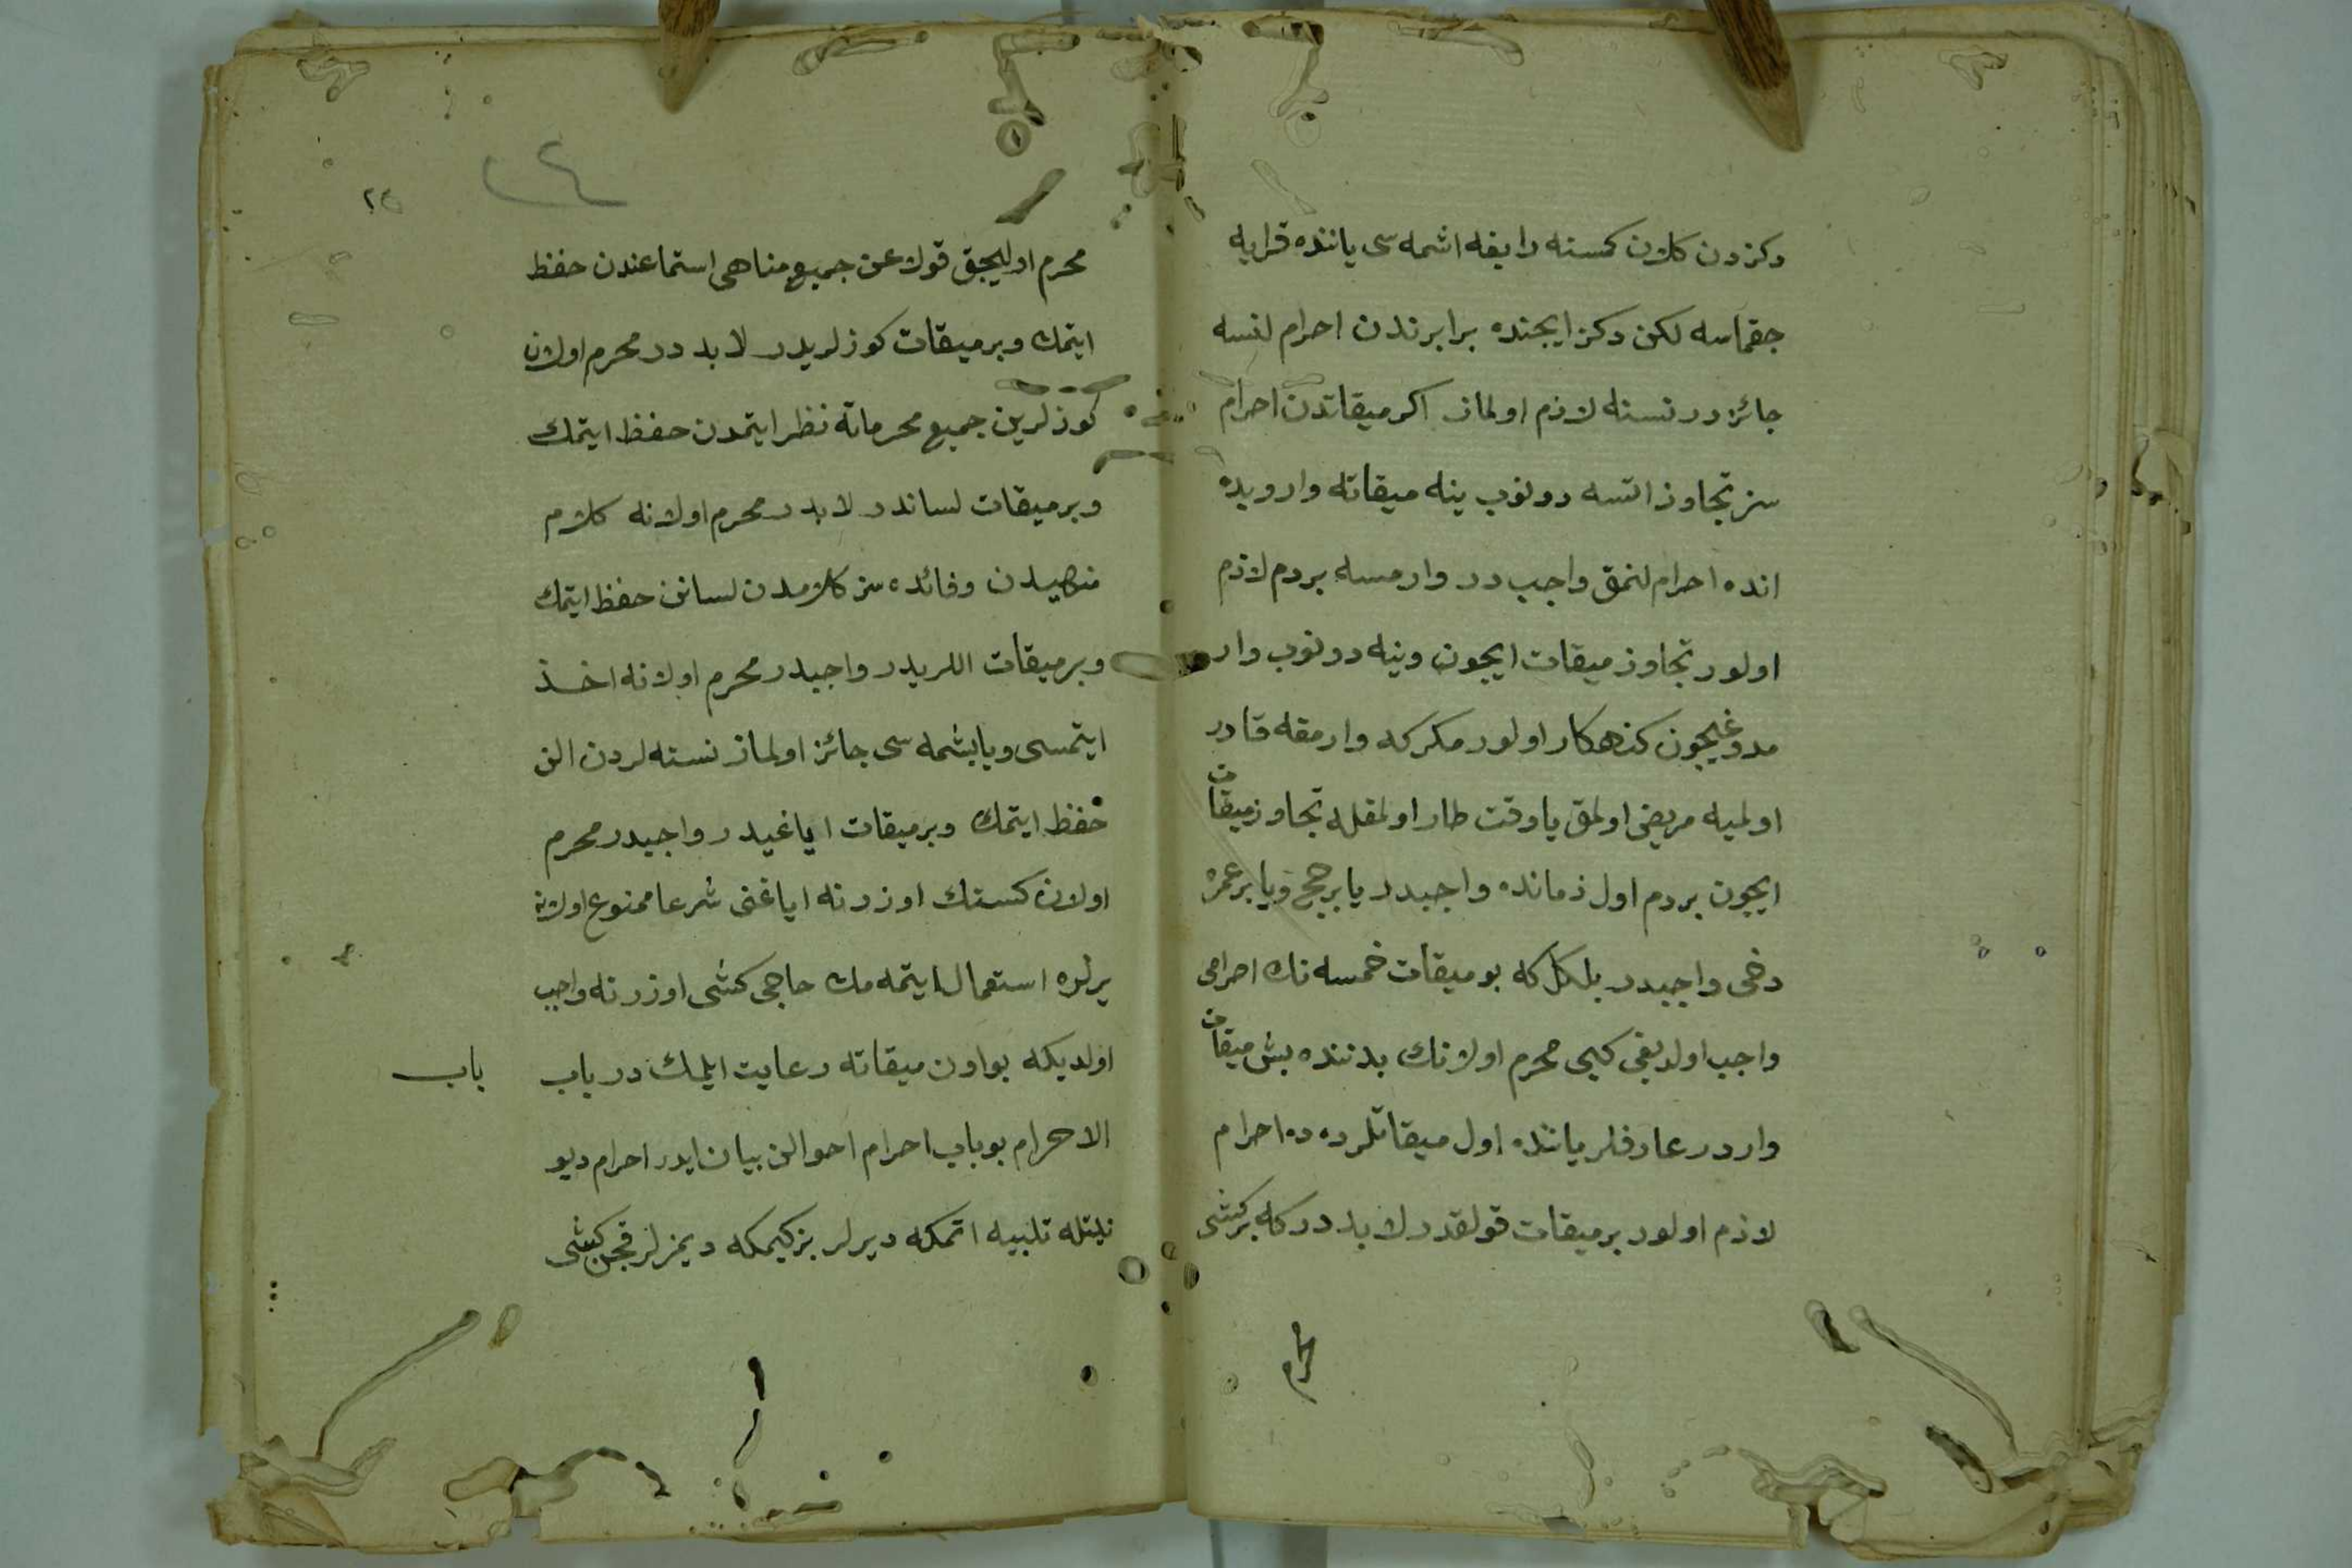 دكزدن كلان كمسنه رابغه اشمه سی یاننده قرایه
جقماسه لكن دكز ایجنده برابرندن احرام لنسه
جائزدر نسنه لازم اولماز اكر میقاتدن احرام
سز تجاوز اتسه دونوب ینه میقاته واروبده
انده احرام لنمق واجب در وارمسه بردم لازم
اولور تجاوز میقات ایجون وینه دونوب وار
مدوغیجون كنهكار اولور مكركه وارمقه قادر
اولمیه مریض اولمق یا وقت طار اولمقله تجاوز میقات
ایجون بردم اول زمانده واجبدر یا بر حج ویا بر عمره
دخی واجبدر بلكل كه بو میقات خمسه نك احرامی
واجب اولدیغی كبی محرم اولانك بدننده بش میقات
واردر عارفلر یاننده اول میقاتلرده ده احرام
لازم اولور بر میقات قولقدر لابددر كه بر كشی
محرم
٢٤
٢٤
محرم اولیجق قولاغن جمیع مناهی استماعندن حفظ
ایتمك وبر میقات كوزلریدر لابددر محرم اولان
كوزلرین جمیع محرماته نظر ایتمدن حفظ ایتمك
وبر میقات لساندر لابدر محرم اولانه كلام
منهیدن وفائده سز كلامدن لسانن حفظ ایتمك
وبر میقات اللریدر واجبدر محرم اولانه اخذ
ایتمسی ویابشمه سی جائز اولماز نسنه لردن الن
حفظ ایتمك وبر میقات ایاغیدر واجبدر محرم
اولان كسنك اوزرنه ایاغنی شرعا ممنوع اولان
یرلره استعمال ایتمه مك حاجی كشی اوزرنه واجب
اولدیكه بو اون میقاته رعایت ایلمك در باب
باب
الاحرام بو باب احرام احوالن بیان ایدر احرام دیو
نیتله تلبیه اتمكه دیرلر بز كیمكه دیمزلر قچن كشی